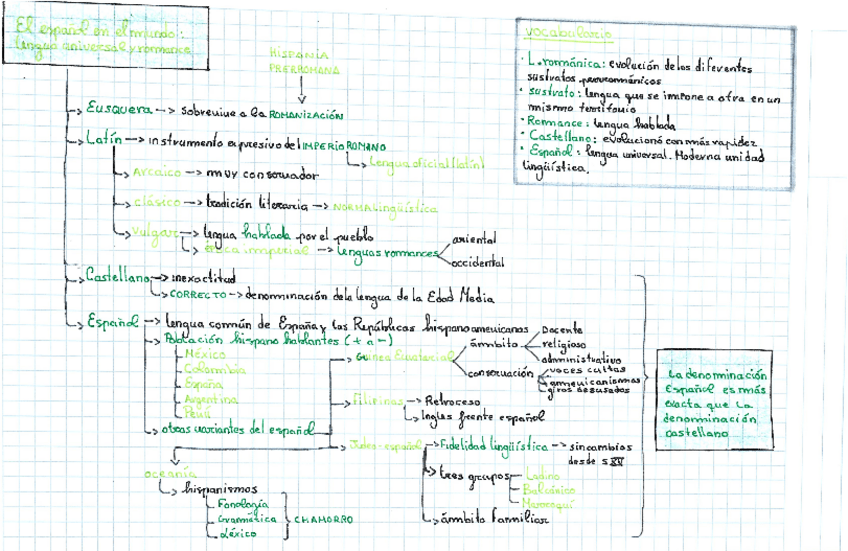 El español en el mundo:
lengua universal y romance
HISPANIA
PRERROMANA
Eusquera → sobrevive a la ROMANIZACIÓN
Latín → instrumento expresivo del IMPERIO ROMANO
Lengua oficial (latín)
Arcaico → muy conservador
clásico → tradición literaria → NORMA lingüística
vulgar → lengua hablada por el pueblo
época imperial → lenguas romances
oriental
occidental
Castellano → inexactitud
CORRECTO → denominación de la lengua de la Edad Media
Español → lengua común de España y las Repúblicas hispanoamericanas
Población hispano hablantes (+ a -)
México
Colombia
España
Argentina
Perú
otras variantes del español
Guinea Ecuatorial
ámbito
Docente
religioso
administrativo
conservación
voces cultas
americanismos
giros desusados
Filipinas → Retroceso
Inglés frente español
Judeo-español → Fidelidad lingüística → sin cambios
desde s XV
tres grupos
Ladino
Balcánico
Marroquí
ámbito familiar
oceanía
hispanismos
Fonología
Gramática
Léxico
CHAMORRO
vocabulario
· L. románica: evolución de los diferentes
sustratos prerrománicos
· sustrato: lengua que se impone a otra en un
mismo territorio
· Romance: lengua hablada
· Castellano: evolucionó con más rapidez
· Español: lengua universal. Moderna unidad
lingüística.
La denominación
Español es más
exacta que la
denominación
castellano